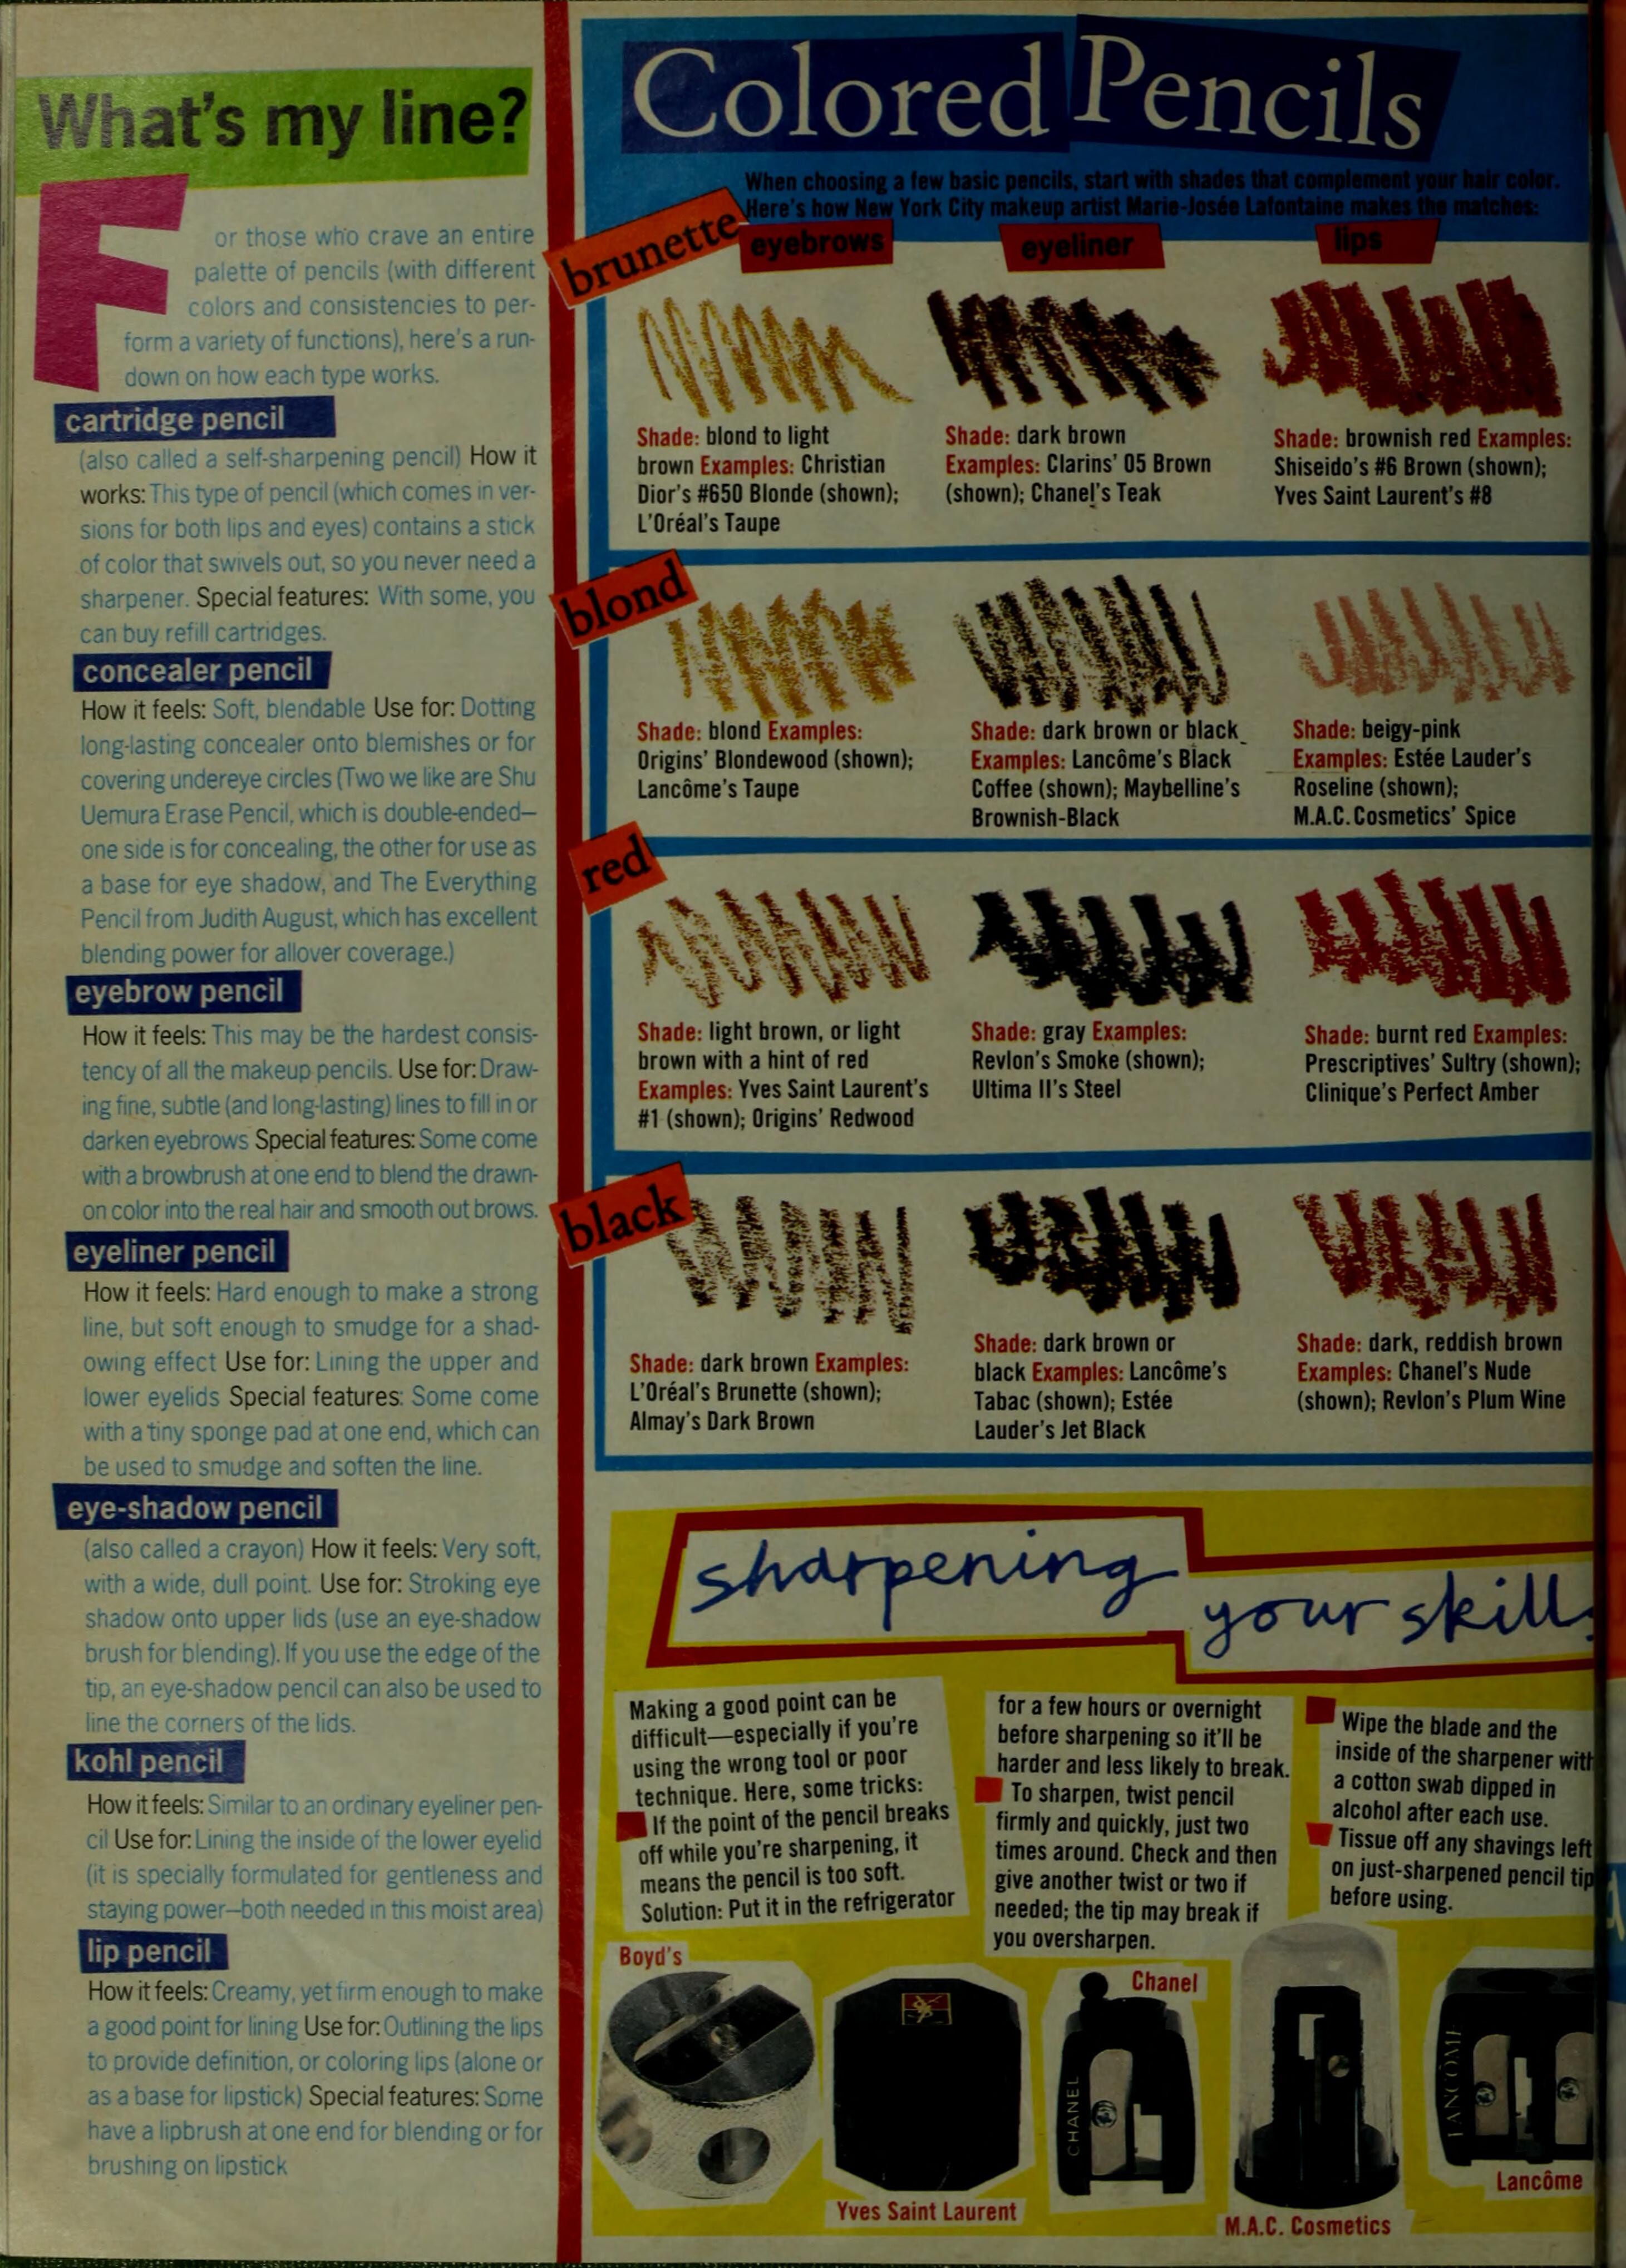 What's my line?
For those who crave an entire
palette of pencils (with different
colors and consistencies to per-
form a variety of functions), here's a run-
down on how each type works.
cartridge pencil
(also called a self-sharpening pencil) How it
works: This type of pencil (which comes in ver-
sions for both lips and eyes) contains a stick
of color that swivels out, so you never need a
sharpener. Special features: With some, you
can buy refill cartridges.
concealer pencil
How it feels: Soft, blendable Use for: Dotting
long-lasting concealer onto blemishes or for
covering undereye circles (Two we like are Shu
Uemura Erase Pencil, which is double-ended—
one side is for concealing, the other for use as
a base for eye shadow, and The Everything
Pencil from Judith August, which has excellent
blending power for allover coverage.)
eyebrow pencil
How it feels: This may be the hardest consis-
tency of all the makeup pencils. Use for: Draw-
ing fine, subtle (and long-lasting) lines to fill in or
darken eyebrows Special features: Some come
with a browbrush at one end to blend the drawn-
on color into the real hair and smooth out brows.
eyeliner pencil
How it feels: Hard enough to make a strong
line, but soft enough to smudge for a shad-
owing effect Use for: Lining the upper and
lower eyelids Special features: Some come
with a tiny sponge pad at one end, which can
be used to smudge and soften the line.
eye-shadow pencil
(also called a crayon) How it feels: Very soft,
with a wide, dull point. Use for: Stroking eye
shadow onto upper lids (use an eye-shadow
brush for blending). If you use the edge of the
tip, an eye-shadow pencil can also be used to
line the corners of the lids.
kohl pencil
How it feels: Similar to an ordinary eyeliner pen-
cil Use for: Lining the inside of the lower eyelid
(it is specially formulated for gentleness and
staying power—both needed in this moist area)
lip pencil
How it feels: Creamy, yet firm enough to make
a good point for lining Use for: Outlining the lips
to provide definition, or coloring lips (alone or
as a base for lipstick) Special features: Some
have a lipbrush at one end for blending or for
brushing on lipstick
Colored Pencils
When choosing a few basic pencils, start with shades that complement your hair color.
Here's how New York City makeup artist Marie-Josée Lafontaine makes the matches:
brunette
eyebrows
eyeliner
lips
Shade: blond to light
brown Examples: Christian
Dior's #650 Blonde (shown);
L'Oréal's Taupe
Shade: dark brown
Examples: Clarins' 05 Brown
(shown); Chanel's Teak
Shade: brownish red Examples:
Shiseido's #6 Brown (shown);
Yves Saint Laurent's #8
blond
Shade: blond Examples:
Origins' Blondewood (shown);
Lancôme's Taupe
Shade: dark brown or black
Examples: Lancôme's Black
Coffee (shown); Maybelline's
Brownish-Black
Shade: beigy-pink
Examples: Estée Lauder's
Roseline (shown);
M.A.C. Cosmetics' Spice
red
Shade: light brown, or light
brown with a hint of red
Examples: Yves Saint Laurent's
#1 (shown); Origins' Redwood
Shade: gray Examples:
Revlon's Smoke (shown);
Ultima II's Steel
Shade: burnt red Examples:
Prescriptives' Sultry (shown);
Clinique's Perfect Amber
black
Shade: dark brown Examples:
L'Oréal's Brunette (shown);
Almay's Dark Brown
Shade: dark brown or
black Examples: Lancôme's
Tabac (shown); Estée
Lauder's Jet Black
Shade: dark, reddish brown
Examples: Chanel's Nude
(shown); Revlon's Plum Wine
sharpening
your skill
Making a good point can be
difficult—especially if you're
using the wrong tool or poor
technique. Here, some tricks:
If the point of the pencil breaks
off while you're sharpening, it
means the pencil is too soft.
Solution: Put it in the refrigerator
for a few hours or overnight
before sharpening so it'll be
harder and less likely to break.
To sharpen, twist pencil
firmly and quickly, just two
times around. Check and then
give another twist or two if
needed; the tip may break if
you oversharpen.
Wipe the blade and the
inside of the sharpener with
a cotton swab dipped in
alcohol after each use.
Tissue off any shavings left
on just-sharpened pencil tip
before using.
Boyd's
Yves Saint Laurent
Chanel
CHANEL
M.A.C. Cosmetics
LANCÔME
Lancôme